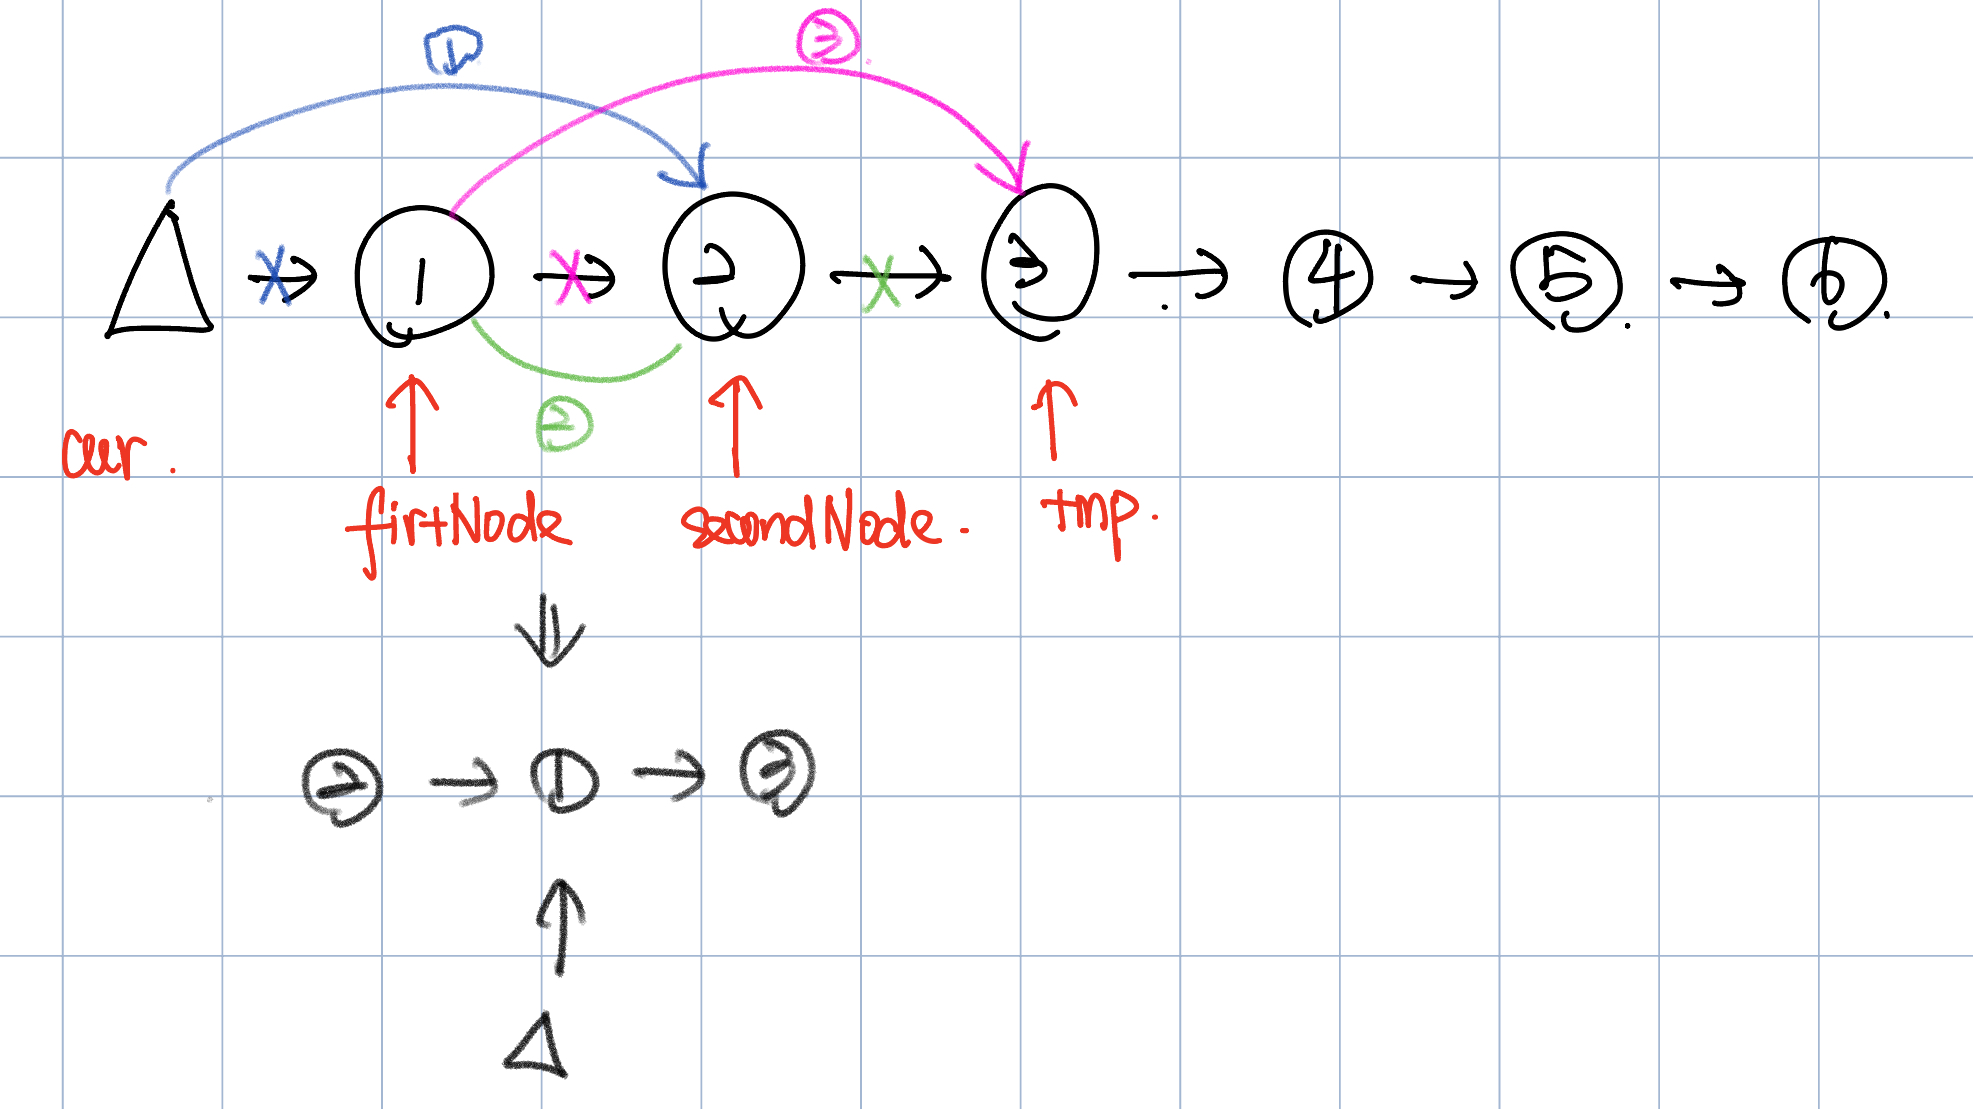 ① ③
1 2 3 4 5 6
②
cur.
firtNode secondNode. tmp.
② → ① → ③